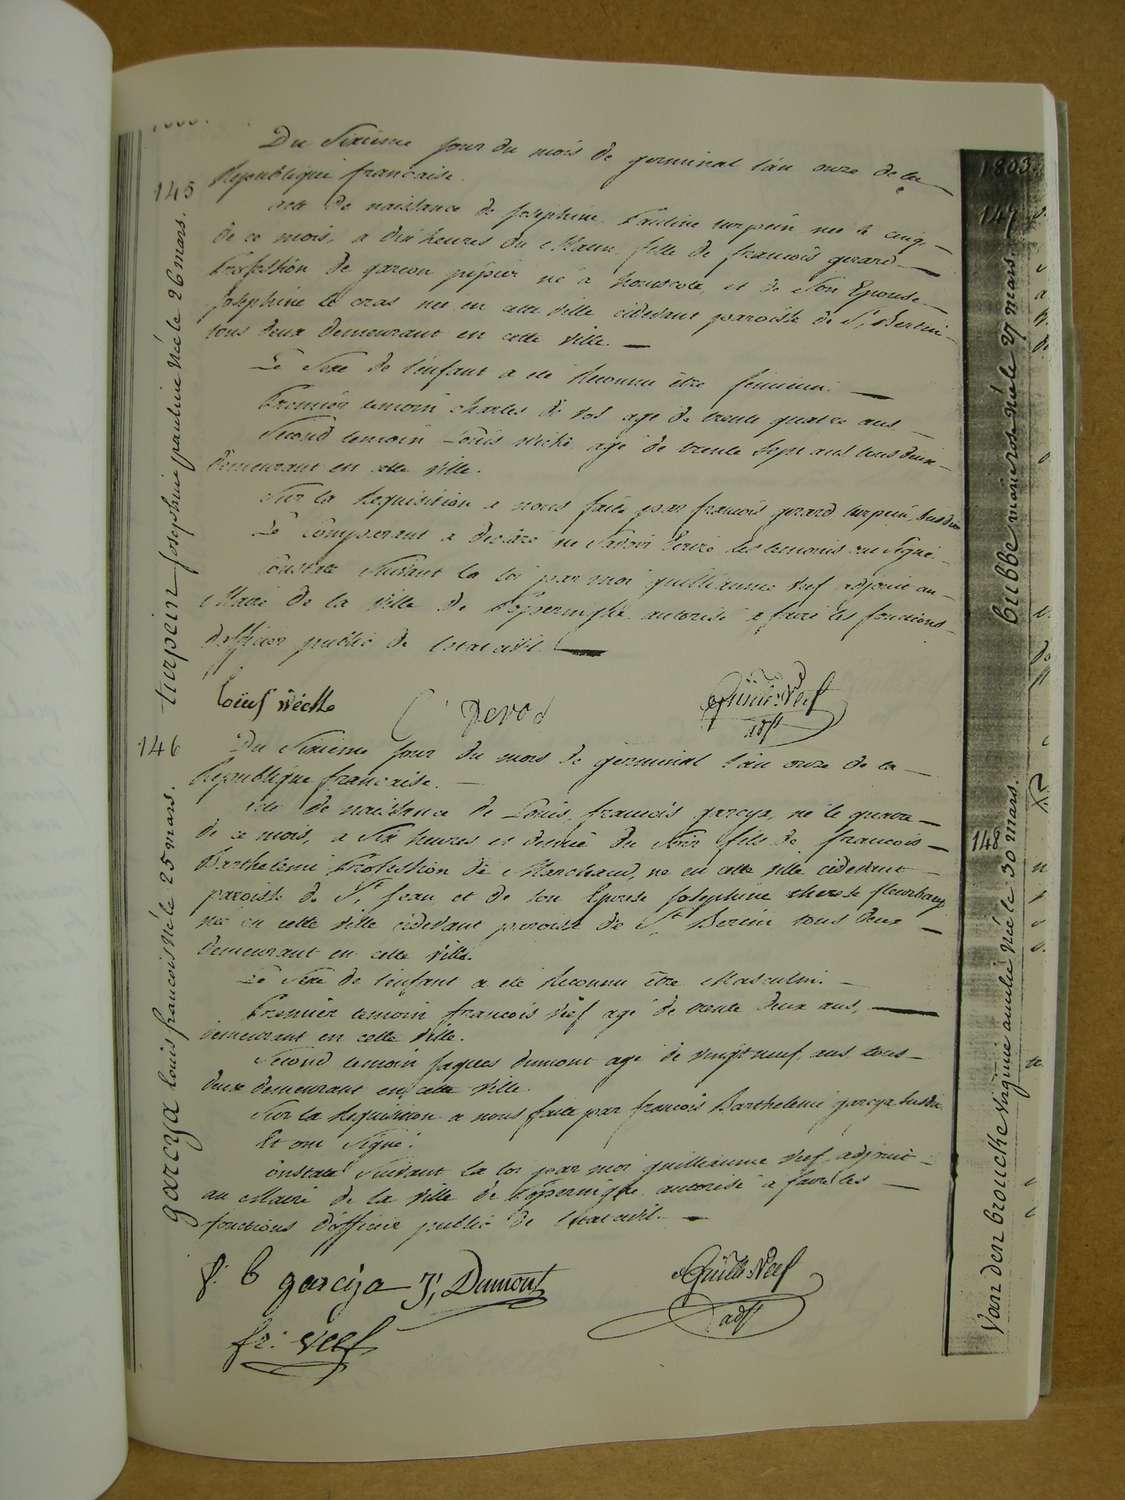 145
turpein Josephine pauline Née le 26 mars.
Du Sixieme jour du mois de germinal l'an onze de la
Republique francaise.
acte de naissance de Josephine Pauline turpein nee le cinq
de ce mois, a dix heures du Matin, fille de francois girard
Profession de garcon né a et de Son Epouse
Josephine le cras nee en cette ville cidevant paroisse de St Bertin
tous deux demeurant en cette ville.
Le Sexe de l'enfant a été Reconnu être feminin.
Premier temoin charles de vos agé de trente quatre ans
Second temoin Louis agé de trente Sept ans tous deux
demeurant en cette ville.
Sur la Requisition a nous faite par francois girard turpein Susdit
Le Comparant a declaré ne Savoir Ecrire les temoins ont Signé.
Constaté Suivant la loi par moi guilliaume Veef adjoint au
Maire de la ville de Poperinghe autorisé a faire les fonctions
d'officier public de l'etat civil.
Louis C Devos Guille Veef
adjt
146
garcya louis francois Né le 25 mars.
Du Sixieme jour du mois de germinal l'an onze de la
Republique francaise.
acte de naissance de Louis francois garcya, né le quatre
de ce mois, a Six heures et demie du Soir fils de francois
Barthelemi Profession de Marchand, ne en cette ville cidevant
paroisse de St Jean et de son Epouse Josephine therese
nee en cette ville cidevant paroisse de St Bertin tous deux
demeurant en cette ville.
Le Sexe de l'enfant a été Reconnu être Masculin.
Premier temoin francois Veef agé de trente deux ans,
demeurant en cette ville.
Second temoin Jaques dumont agé de vingt neuf ans tous
deux demeurant en cette ville.
Sur la Requisition a nous faite par francois Barthelemi garcya Susdit
Et ont Signé.
Constaté Suivant la loi par moi guilliaume Veef adjoint
au Maire de la ville de Poperinghe autorisé a faire les
fonctions d'officier public de l'etat civil.
f: b garcija J, Dumont Guille Veef
adjt
fr: Veef
1803.
147
bubbe marie rose Née le 27 mars.
148
Van den brouche Virginie amelie Née le 30 mars.